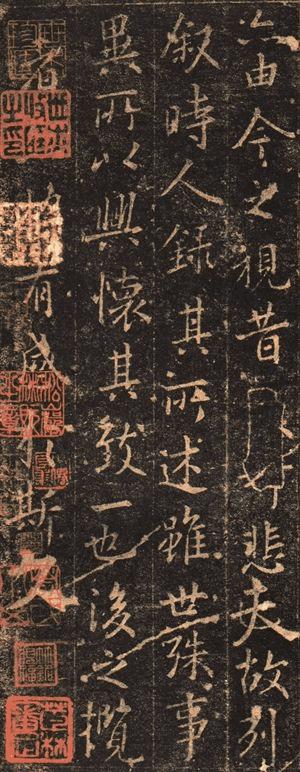 亦由今之視昔悲夫故列
叙時人録其所述雖世殊事
異所以興懷其致一也後之攬
者將有感於斯文